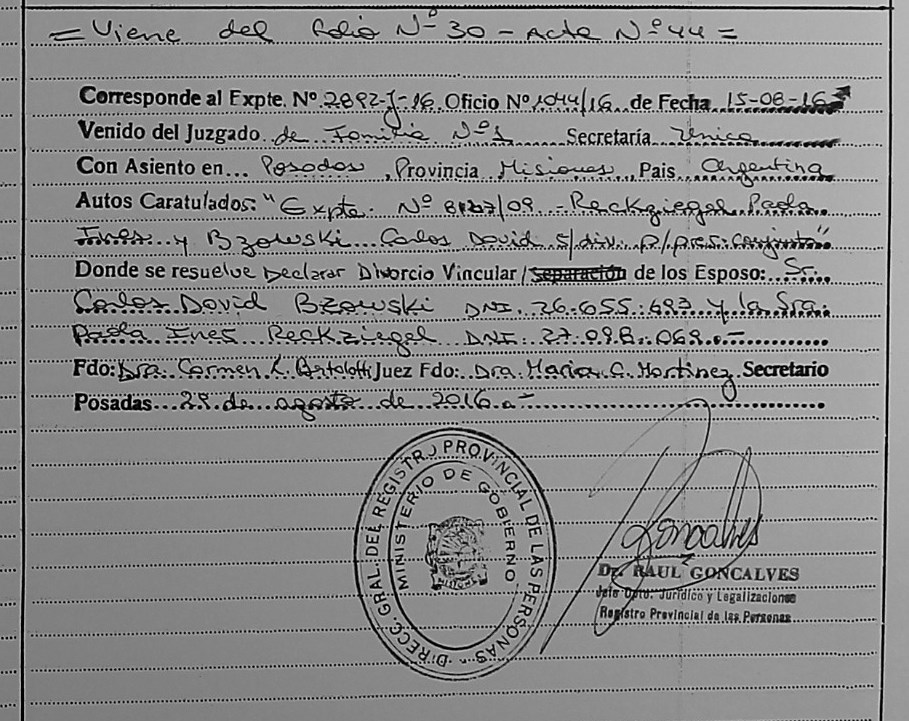 = Viene del folio Nº 30 - Acta Nº 44 =
Corresponde al Expte. Nº 2892-J-16 Oficio Nº 1044/16 de Fecha 15-08-16
Venido del Juzgado de Familia Nº 1 Secretaría Unica
Con Asiento en Posadas, Provincia Misiones, Pais Argentina
Autos Caratulados: "Expte. Nº /09 - Reckziegel Paola
Ines y Bzowski Carlos David s/div. p/pres. conjunta"
Donde se resuelve Declarar Divorcio Vincular/Separación de los Esposo: Sr.
Carlos David Bzowski DNI. 26.655.693 y la Sra.
Paola Ines Reckziegel DNI. 27.098.069.-
Fdo: Dra. Carmen Juez Fdo: Dra. Maria G. Martinez Secretario
Posadas 29 de agosto de 2016.-
DIRECC. GRAL. DEL REGISTRO PROVINCIAL DE LAS PERSONAS
MINISTERIO DE GOBIERNO
Goncalves
Dr. RAUL GONCALVES
Jefe Dpto. Jurídico y Legalizaciones
Registro Provincial de las Personas